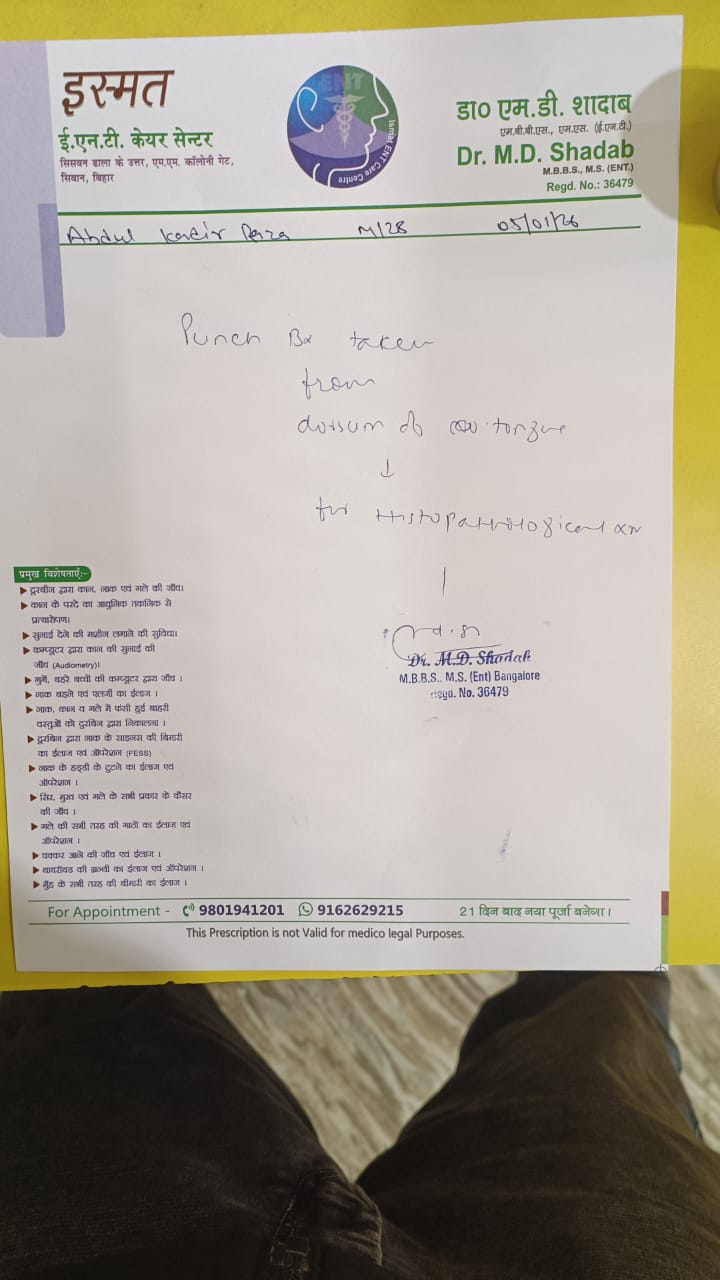 इस्मत
ई.एन.टी. केयर सेन्टर
सिसवन ढाला के उत्तर, एम.एम. कॉलोनी गेट,
सिवान, बिहार
ENT
Ismat ENT Care Centre
डा० एम.डी. शादाब
एम.बी.बी.एस., एम.एस. (ई.एन.टी.)
Dr. M.D. Shadab
M.B.B.S., M.S. (ENT.)
Regd. No.: 36479
Abdul Kadir Raza M/28 05/01/26
Punch Bx taken
from
dorsum of tongue
↓
for Histopathological xn
Dr. M.D. Shadab
M.B.B.S.. M.S. (Ent) Bangalore
Regd. No. 36479
प्रमुख विशेषताएँ:-
दूरबीन द्वारा कान, नाक एवं गले की जाँच।
कान के परदे का आधुनिक तकनिक से
प्रत्यारोपण।
सुनाई देने की मशीन लगाने की सुविधा।
कम्प्यूटर द्वारा कान की सुनाई की
जाँच (Audiometry)।
गुगें, बहरे बच्चों की कम्प्यूटर द्वारा जाँच ।
नाक बहने एवं एलर्जी का ईलाज ।
नाक, कान व गले में फंसी हुई बाहरी
वस्तुओं को दुरबिन द्वारा निकालना ।
दूरबिन द्वारा नाक के साइनस की बिमारी
का ईलाज एवं ऑपरेशन (FESS)
नाक के हड्डी के टुटने का ईलाज एवं
ऑपरेशन ।
सिर, मुख एवं गले के सभी प्रकार के कैंसर
की जाँच ।
गले की सभी तरह की गाठों का ईलाज एवं
ऑपरेशन ।
चक्कर आने की जाँच एवं ईलाज ।
थायरॉयड की ग्रन्थी का ईलाज एवं ऑपरेशन ।
मुँह के सभी तरह की बीमारी का ईलाज ।
For Appointment - 9801941201 9162629215 21 दिन बाद नया पूर्जा बनेगा।
This Prescription is not Valid for medico legal Purposes.